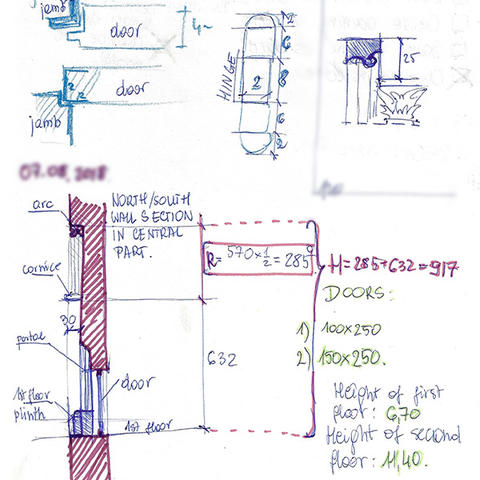 jamb
door
4~
door
2 2
jamb
HINGE
2
2
6
8
6
2
25
07.08.2018
arc
NORTH/SOUTH
WALL SECTION
IN CENTRAL
PART.
cornice
30
portal
1st floor
plinth
door
1st floor
R = 570 x 1/2 = 285
632
H = 285 + 632 = 917
DOORS:
1) 100x250
2) 150x250.
Height of first
floor: 6,70
Height of second
floor: 11,40.